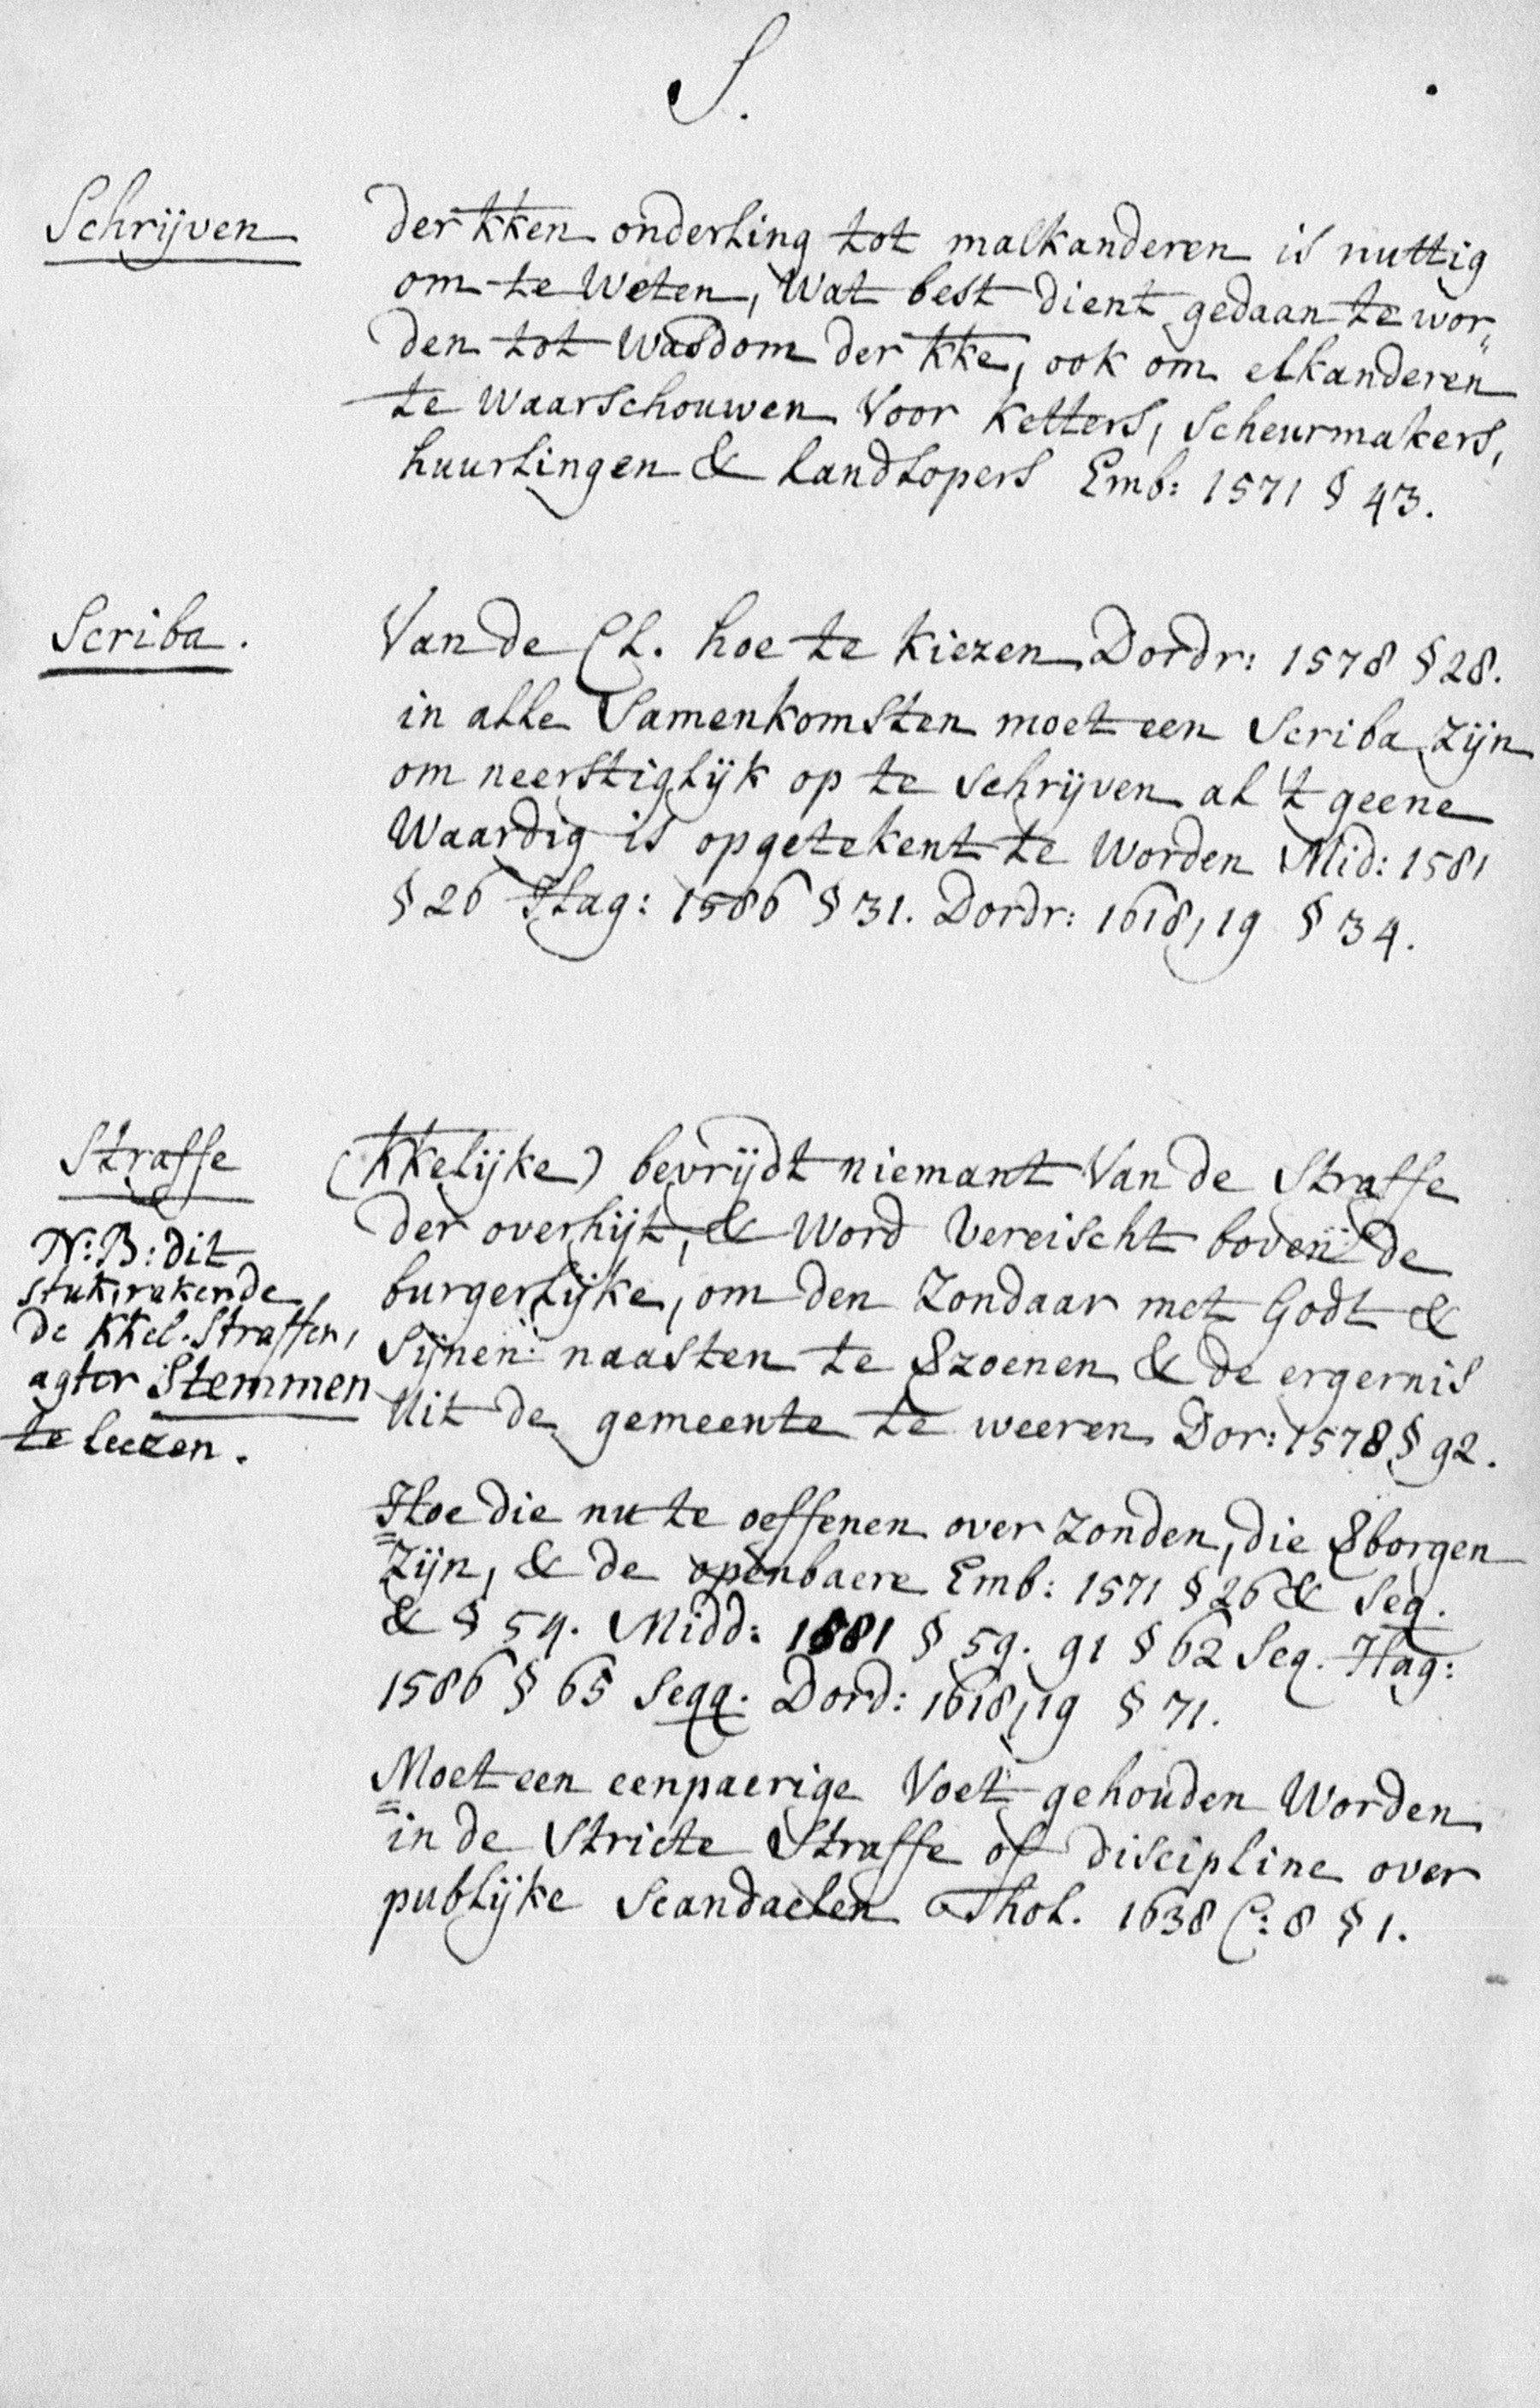 S.
Schrijven
der kken onderling tot malkanderen is nuttig
om te Weten, Wat best dient gedaan te wor„
den tot Wasdom der kke, ook om elkanderen
te Waarschouwen Voor Ketters, Scheurmakers,
huurlingen & landlopers Emb: 1571 § 43.
Scriba.
Van de Cl. hoe te Kiezen Dordr: 1578 § 28.
in alle Samenkomsten moet een Scriba Zijn
om neerstiglijk op te schrijven al 't geene
Waardig is opgetekent te Worden Mid: 1581
§ 26 Hag: 1586 § 31. Dordr: 1618,19 § 34.
Straffe
(kkelijke) bevrijdt niemant Van de Straffe
der overhijt, & Word Vereischt boven de
burgerlijke, om den Zondaar met Godt &
Sijnen naasten te 8zoenen & de ergernis
Uit de gemeente te weeren Dor: 1578 § 92.
N:B: dit
stuk, rakende
de kkel. Straffen,
agter Stemmen
te leezen.
Hoe die nu te oeffenen over Zonden, die 8borgen
Zijn, & de openbaere Emb: 1571 § 26 & Seq.
& § 54. Midd: 1581 § 59. 91 § 62 Seq. Hag:
1586 § 65 Seqq. Dord: 1618,19 § 71.
Moet een eenpaerige Voet gehouden Worden
in de Stricte Straffe of discipline over
publijke Scandaelen Thol. 1638 C: 8 § 1.